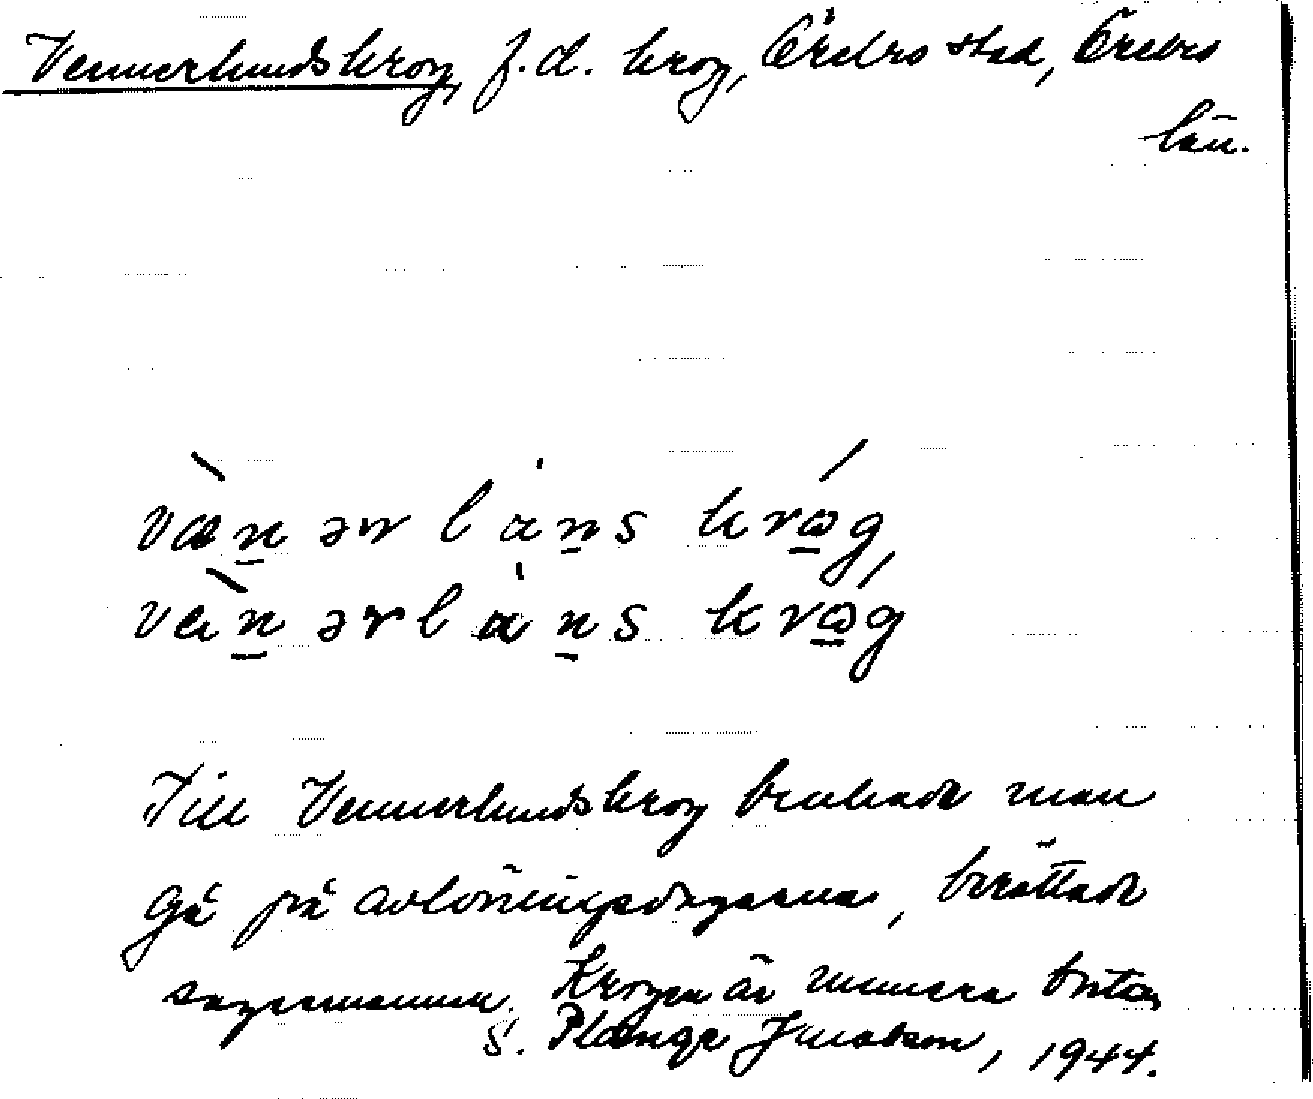 Vennerlundskrog, f.d. krog, Örebro stad, Örebro
län.
væ̀n̲ərlán̲s krɷ̲́g
vàn̲ərlán̲s krɷ̲́g
Till Vennerlundskrog brukade man
gå på avlöningsdagarna, berättade
sagesmannen. Krogen är numera borta,
S. Plænge Jacobson, 1944.